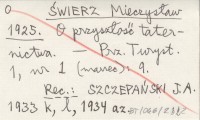 O ŚWIERZ Mieczysław
1925. O przyszłość tater-
nictwa. — Prz. Turyst.
1, nr 1 (marzec): 9.
Rec.: SZCZEPAŃSKI J.A.
1933 k, l, 1934 az